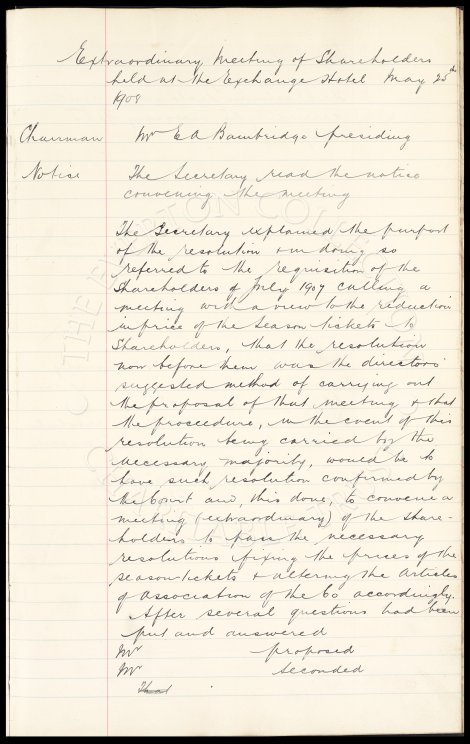 Extraordinary Meeting of Shareholders
held at the Exchange Hotel May 25th
1908
Chairman Mr E A Bambridge presiding
Notice The Secretary read the notice
convening the meeting
The Secretary explained the purport
of the resolution & in doing so
referred to the requisition of the
Shareholders of July 1907 calling a
meeting with a view to the reduction
in price of the Season tickets to
Shareholders, that the resolution
now before them was the directors'
suggested method of carrying out
the proposal of that meeting & that
the proceedure, in the event of this
resolution being carried by the
necessary majority, would be to
have such resolution confirmed by
the Court and, this done, to convene a
meeting (extraordinary) of the share-
holders to pass the necessary
resolutions fixing the prices of the
season tickets & altering the Articles
of Association of the Co accordingly.
After several questions had been
put and answered
Mr proposed
Mr seconded
That